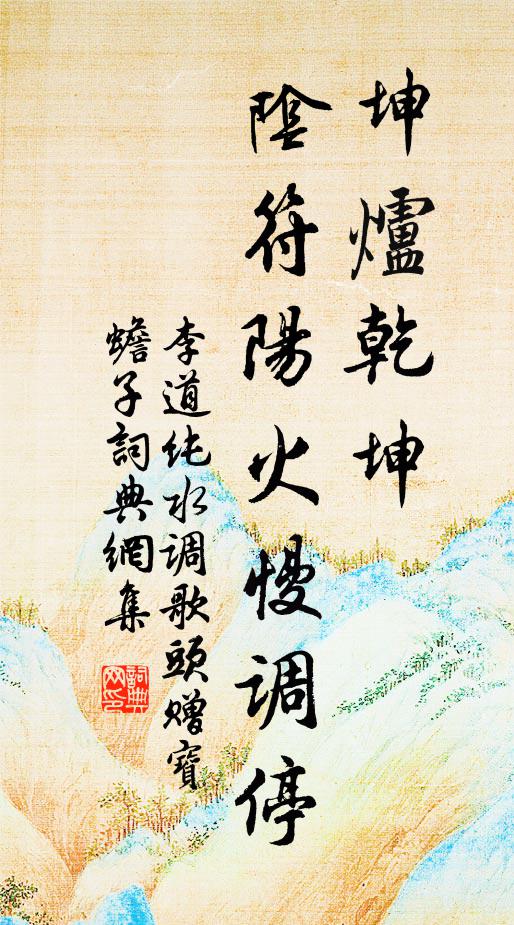 坤爐乾坤
陰符陽火慢調停
李道纯水调歌頭赠寶
蟾子詞典網集
詞典网印